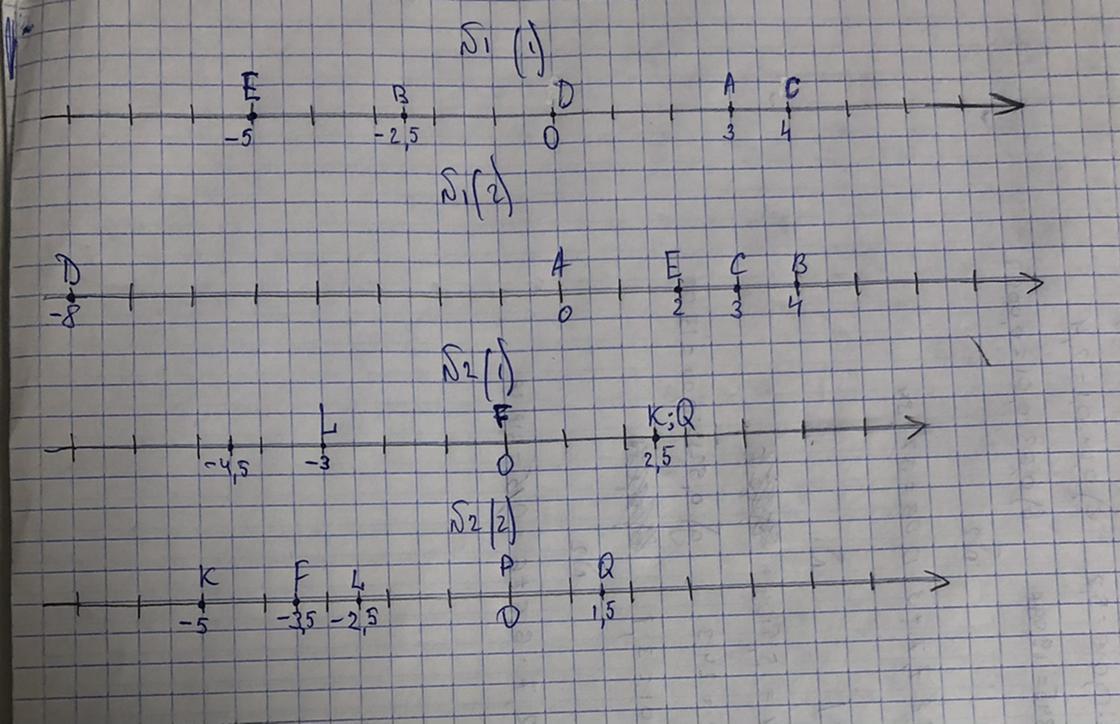 №1 (1)
E B D A C
-5 -2,5 0 3 4
№1 (2)
D A E C B
-8 0 2 3 4
№2 (1)
L F K;Q
-4,5 -3 0 2,5
№2 (2)
K F L P Q
-5 -3,5 -2,5 0 1,5